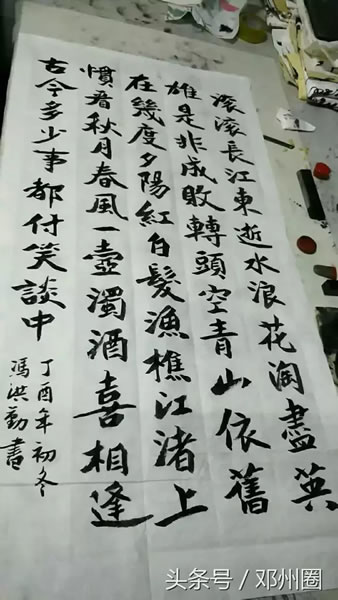 滚滚長江東逝水浪花淘盡英
雄是非成敗轉頭空青山依舊
在幾度夕陽紅白髮漁樵江渚上
慣看秋月春風一壺濁酒喜相逢
古今多少事都付笑談中
丁酉年初冬
馮洪勤書
头条号／邓州圈